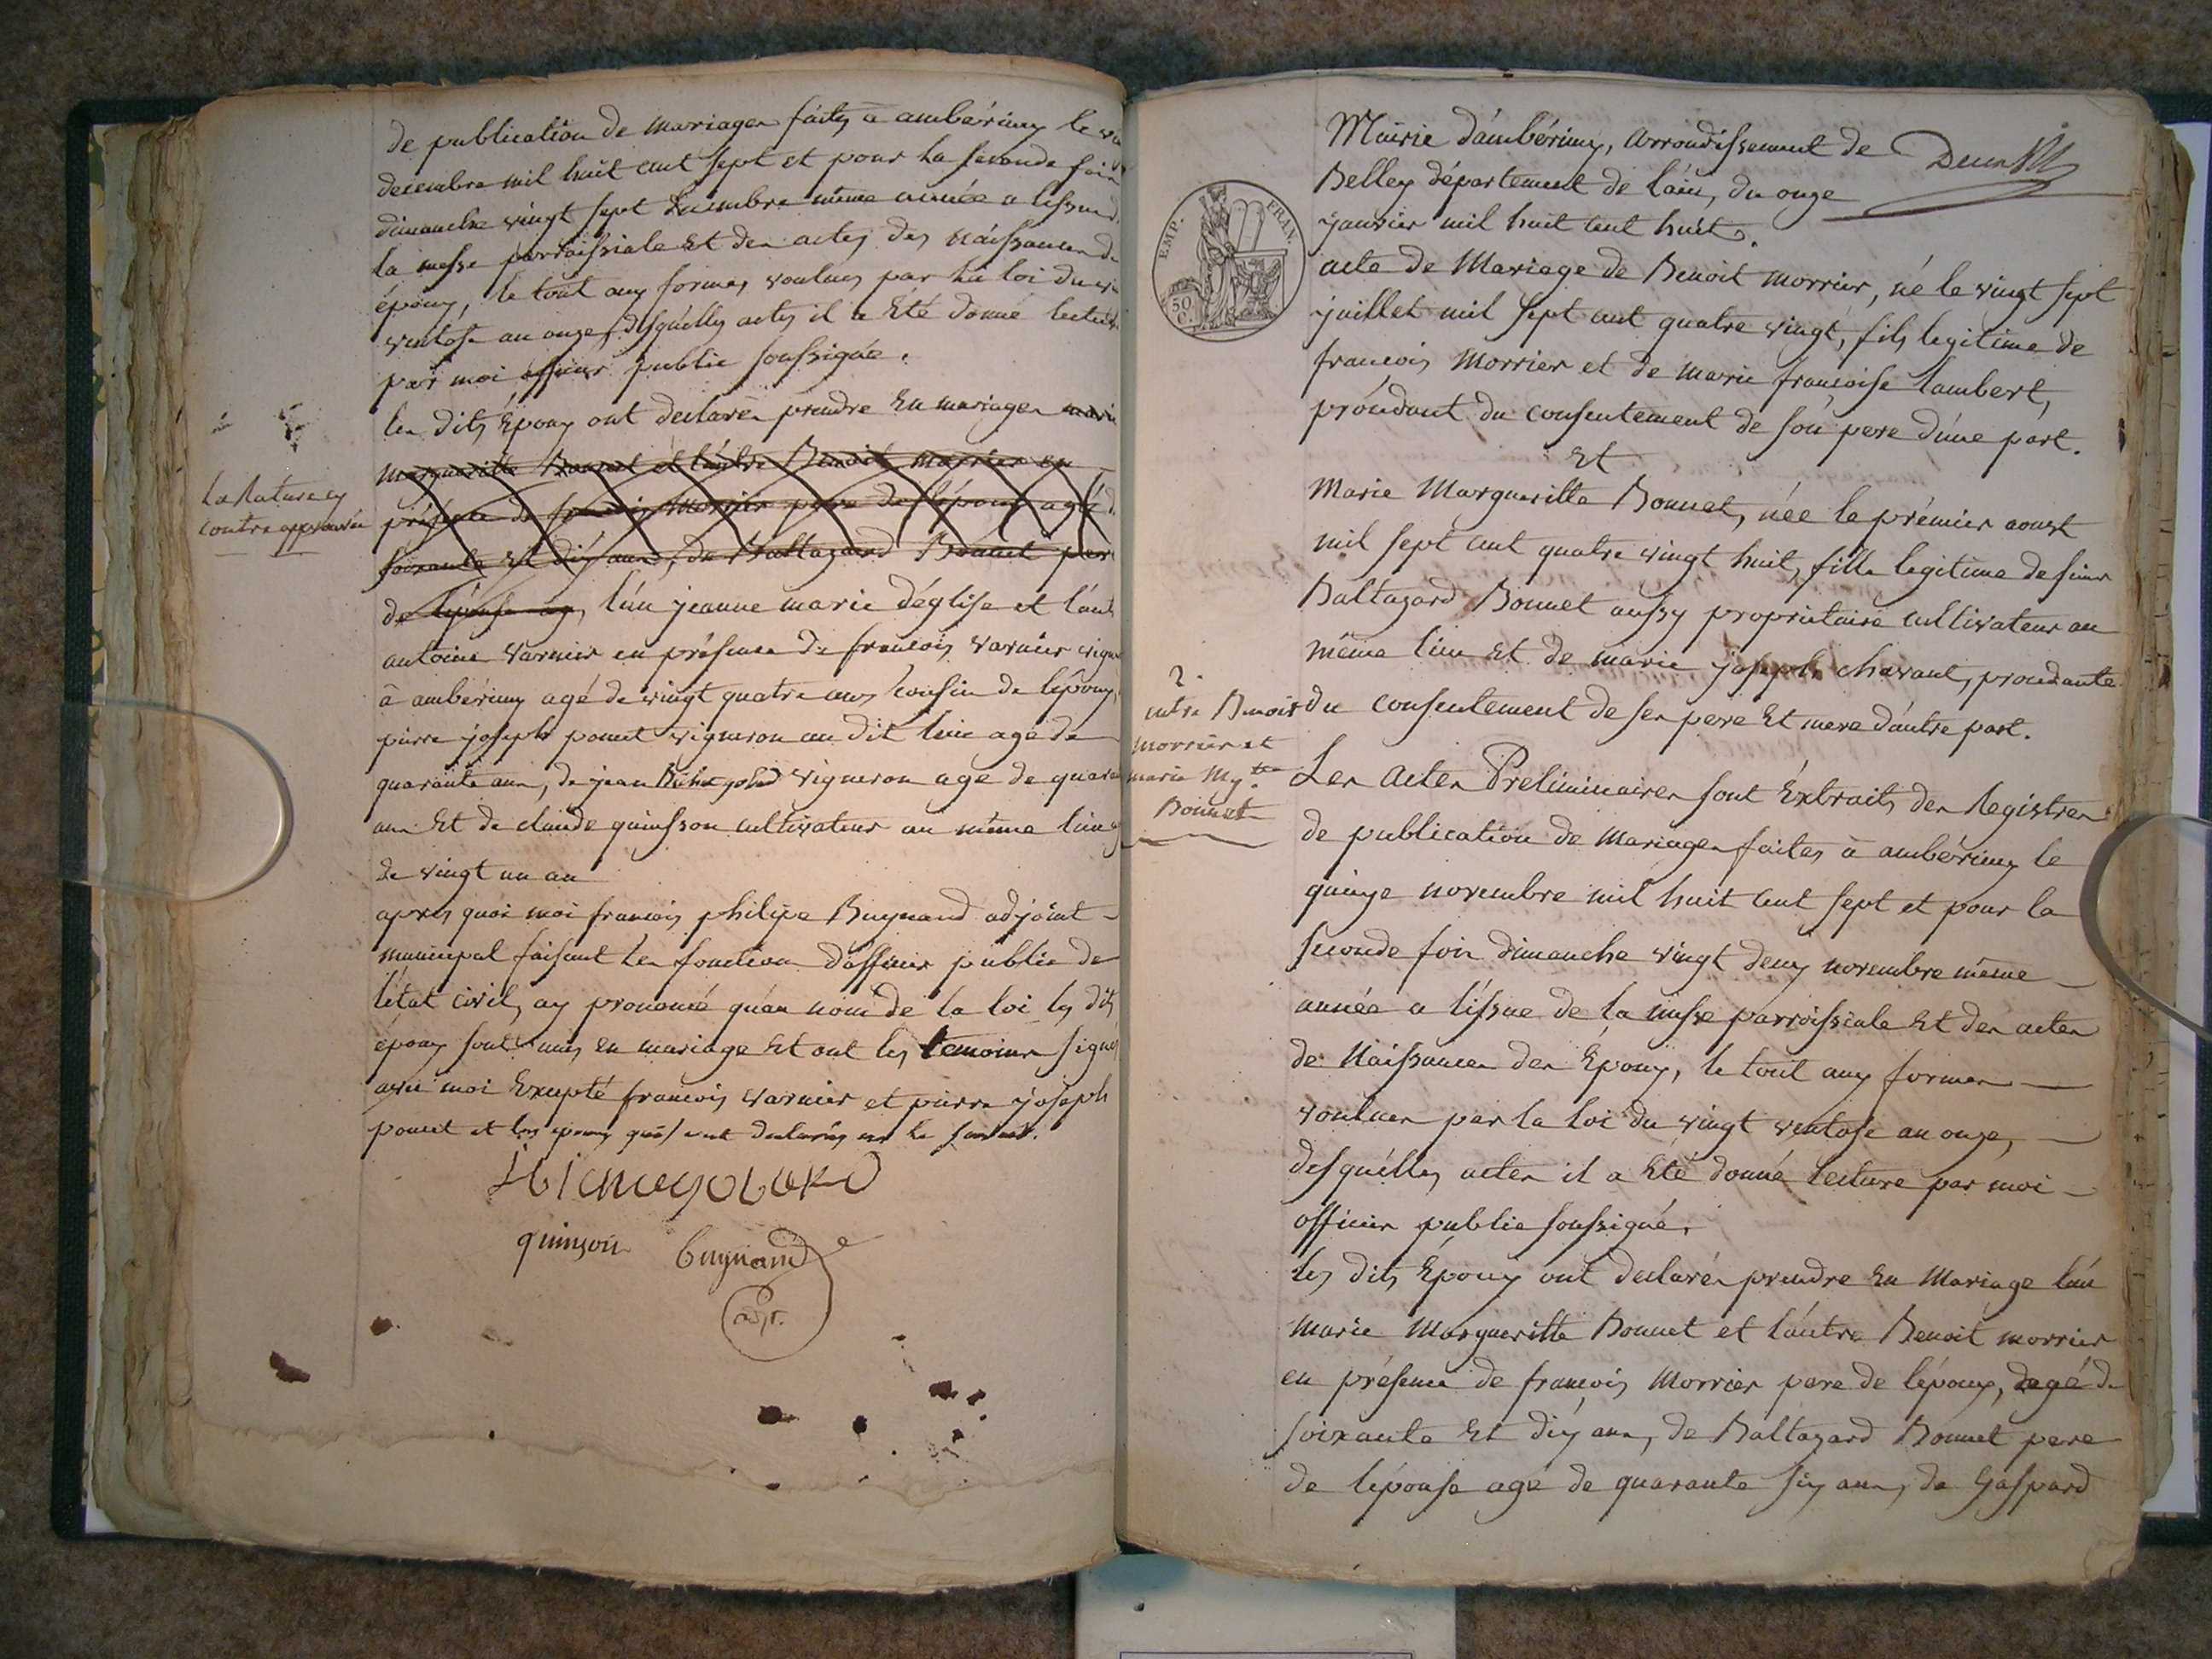 de publication de mariages faites à ambérieux le
decembre mil huit cent sept et pour la seconde fois
dimanche vingt sept decembre même année a lissue de
la messe parroissiale et des actes des naissances des
époux, le tout aux formes voulues par la loi du
ventose an onze, desquelles actes il a été donné lecture
par moi officier public soussigné.
les dits époux ont declarés prendre en mariages marie
margueritte Bonnet et l'autre Benoit morrier en
présence de françois Morrier pere de l'époux agé de
soixante et dix ans, de Baltazard Bonnet pere
de l'épouse ag, l'un jeanne marie d'église et l'autre
antoine varnier en présence de françois varnier
à ambérieux agé de vingt quatre ans cousin de l'époux,
pierre joseph poncet vigneron au dit lieu agé de
quarante ans, de jean vigneron age de
ans et de claude quinsson cultivateur au même lieu
de vingt un an
après quoi moi françois philipe Buynand adjoint
municipal faisant les fonction d'officier public de
l'état civil, ay prononcé qu'au nom de la loi les dits
époux sont unis en mariage et ont les temoins signé
avec moi Excepté françois varnier et pierre joseph
poncet et les epoux qui ont declarés ne le savoir.
quinson Buynand
adjt.
la rature cy
contre approuvée
Mairie d'ambérieux, arrondissement de
Belley département de l'ain, du onze
janvier mil huit cent huit.
EMP. FRAN.
50 C.
acte de Mariage de Benoit morrier, né le vingt sept
juillet mil sept cent quatre vingt, fils legitime de
francois Morrier et de marie françoise lambert,
procédant du consentement de son pere d'une part.
Et
Marie Margueritte Bonnet, née le prémier aoust
mil sept cent quatre vingt huit, fille legitime de sieur
Baltazard Bonnet aussy proprietaire cultivateur au
même lieu et de marie joseph chavant, procedante
du consentement de ses pere et mere d'autre part.
2.
entre Benoit
morrier et
marie Mgte
Bonnet
Les actes Preliminaires sont Extraits des Registres
de publication de mariages faites à ambérieux le
quinze novembre mil huit cent sept et pour la
seconde fois dimanche vingt deux novembre même
année a l'issue de la messe parroissiale et des actes
de Naissances des Epoux, le tout aux formes
voulues par la loi du vingt ventose an onze,
desquelles actes il a été donné lecture par moi
officier public soussigné.
les dits Epoux ont declarés prendre en Mariage l'un
marie Margueritte Bonnet et l'autre Benoit morrier
en présence de françois Morrier pere de l'époux, agé de
soixante et dix ans, de Baltazard Bonnet pere
de l'épouse agé de quarante six ans, de Gaspard